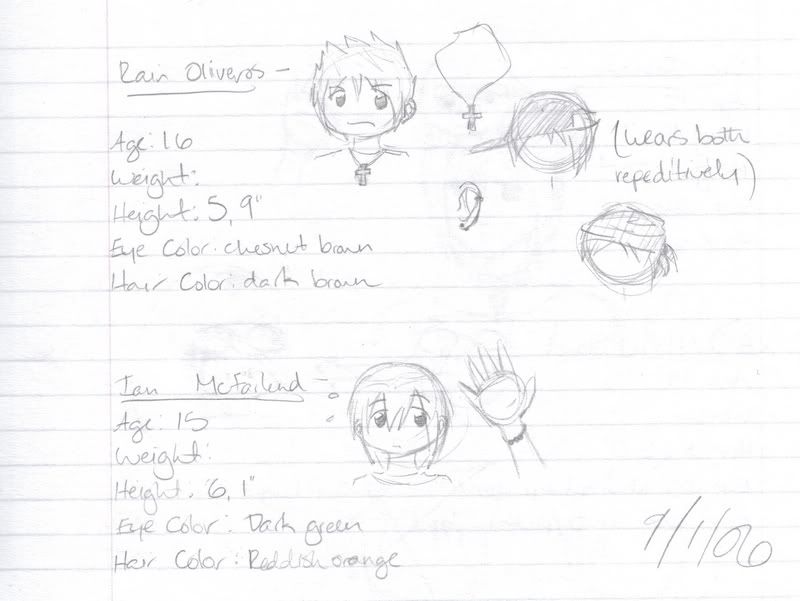 Rain Oliveros -
Age: 16
Weight:
Height: 5, 9"
Eye Color: chesnut brown
Hair Color: dark brown
(wears both
repeditively)
Ian McFarlend -
Age: 15
Weight:
Height: 6, 1"
Eye Color: Dark green
Hair Color: Reddish orange
9/1/06